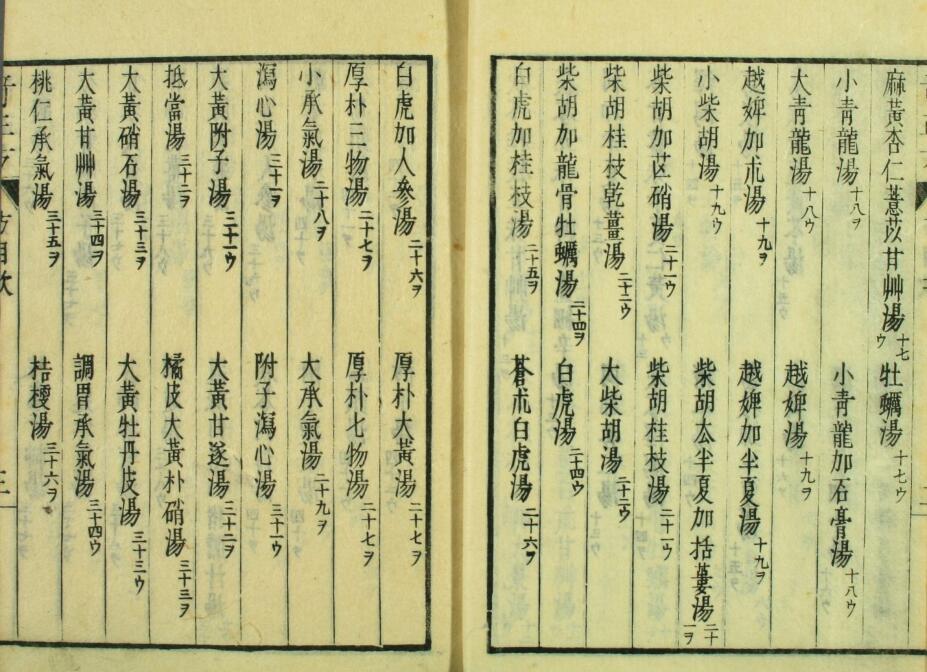 麻黃杏仁薏苡甘艸湯 十七ウ 牡蠣湯 十七ウ
小青龍湯 十八ヲ 小青龍加石膏湯 十八ウ
大青龍湯 十八ウ 越婢湯 十九ヲ
越婢加朮湯 十九ヲ 越婢加半夏湯 十九ヲ
小柴胡湯 十九ウ 柴胡厺半夏加括蔞湯 二十一ヲ
柴胡加芒硝湯 二十一ウ 柴胡桂枝湯 二十一ウ
柴胡桂枝乾薑湯 二十二ウ 大柴胡湯 二十三ウ
柴胡加龍骨牡蠣湯 二十四ヲ 白虎湯 二十四ウ
白虎加桂枝湯 二十五ヲ 蒼朮白虎湯 二十六ヲ
白虎加人參湯 二十六ヲ 厚朴大黃湯 二十七ヲ
厚朴三物湯 二十七ヲ 厚朴七物湯 二十七ヲ
小承氣湯 二十八ヲ 大承氣湯 二十九ヲ
瀉心湯 三十一ヲ 附子瀉心湯 三十一ウ
大黃附子湯 三十一ウ 大黃甘遂湯 三十二ヲ
抵當湯 三十二ヲ 橘皮大黃朴硝湯 三十三ヲ
大黃硝石湯 三十三ヲ 大黃牡丹皮湯 三十三ウ
大黃甘艸湯 三十四ヲ 調胃承氣湯 三十四ウ
桃仁承氣湯 三十五ヲ 桔梗湯 三十六ヲ